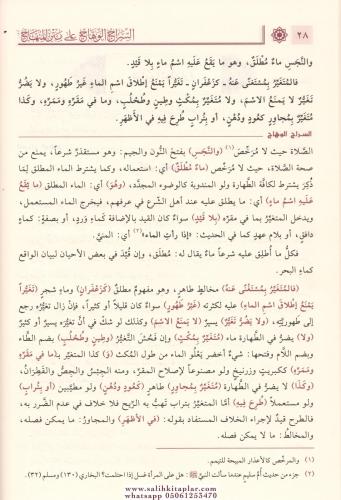 السراج الوهاج على متن المنهاج
٢٨
والنَّجَسِ ماءٌ مُطْلَقٌ، وهو ما يَقَعُ عَلَيهِ اسْمُ ماءٍ بِلا قَيْدٍ.
فالمُتَغَيِّرُ بِمُسْتَغْنًى عَنْهُ ـ كَزَعْفَرانٍ ـ تَغَيُّراً يَمْنَعُ إطْلاقَ اسْمِ الماءِ غَيرُ طَهُورٍ، ولا يَضُرُّ
تَغَيُّرٌ لا يَمنَعُ الاسْمَ، ولا مُتَغَيِّرٌ بِمُكْثٍ وطِينٍ وطُحْلُبٍ، وما في مَقَرِّهِ ومَمَرِّهِ، وكَذا
مُتَغَيِّرٌ بِمُجاوِرٍ كعُودٍ ودُهْنٍ، أو بِتُرابٍ طُرِحَ فيهِ في الأظْهَرِ.
السراج الوهاج
الصَّلاة حيث لا مُرَخِّصَ(١) (والنَّجَسِ) بفتح النُّون والجيم: وهو مستقذرٌ شرعاً، يمنع من
صحَّة الصَّلاة، حيث لا مُرَخِّصَ (ماءٌ مُطْلَقٌ) أي: استعماله، وكما يشترط الماء المطلق لِمَا
ذُكِرَ يشترط لكافَّة الطَّهارة ولو المندوبة كالوضوء المجدَّد، (وهُوَ) أي: الماء المطلق (ما يَقَعُ
عَلَيهِ اسْمُ ماءٍ) أي: ما يطلق عليه عند أهل الشَّرع في عرفهم، فيخرج الماء المستعمل،
ويدخل المتغيِّر بما في مقرِّه (بِلا قَيْدٍ) سواءٌ كان القيد بالإضافة كماءِ وردٍ، أو بصفةٍ: كماءٍ
دافقٍ، أو بلام عهدٍ كما في الحديث: «إذا رأتِ الماء»(٢) أي: المنيَّ.
فكلُّ ما أُطلِق عليه شرعاً ماءٌ يقال له: مطلق، وإن قُيِّدَ في بعض الأحيان لبيان الواقع
كماءِ البحر.
(فالمُتَغَيِّرُ بِمُسْتَغْنًى عَنْهُ) مخالطٍ طاهرٍ، وهو مفهوم مطلق (كَزَعْفَرانٍ) وماءِ شجرٍ (تَغَيُّراً
يَمْنَعُ إطْلاقَ اسْمِ الماءِ) عليه لكثرته (غَيرُ طَهُورٍ) سواءٌ كان قليلاً أو كثيراً، فإنْ زال تغيُّره رجع
إلى طهوريَّته، (ولا يَضُرُّ تَغَيُّرٌ) يسيرٌ (لا يَمنَعُ الاسْمَ) وكذلك لو شكَّ في أنَّ تغيُّره يسيرٌ أو كثيرٌ
(ولا) يضرُّ في الطَّهارة ماء (مُتَغَيِّرٌ بِمُكْثٍ) وإن فَحُشَ التَّغيُّر (وطِينٍ وطُحْلُبٍ) بضم الطَّاء
وبضم اللَّام وفتحها: شيءٌ أخضر يَعْلُو الماء من طول المُكث (و) كذا المتغيِّر بـ(ما في مَقَرِّهِ
ومَمَرِّهِ) ككبريتٍ وزرنيخٍ ولو مصنوعاً لإصلاح المقرِّ، ومنه الجِبْسُ والجِصُّ والقَطِرَانُ،
(وكَذا) لا يضرُّ في الطَّهارة (مُتَغَيِّرٌ بِمُجاوِرٍ) طاهرٍ (كعُودٍ ودُهْنٍ) ولو مطيَّبين (أو بِتُرابٍ)
ولو مستعملاً (طُرِحَ فيهِ) أمَّا المتغيِّر بترابٍ تهبُّ به الرِّيح فلا خلاف في عدم الضَّرر به،
فالطرح قيدٌ لإجراء الخلاف المستفاد بقوله: (في الأظْهَرِ) والمجاورُ: ما يمكن فصله،
والمخالطُ: ما لا يمكن فصله.
(١) والمرخّص كالأعذار المبيحة للتيمم.
(٢) جزء من حديث أم سليم عندما سألت النبيَّ ﷺ: هل على المرأة غسل إذا احتلمت؟ البخاري (١٣٠) ومسلم (٣٢).
www.salihkitaplar.com
whatsapp 05061253470